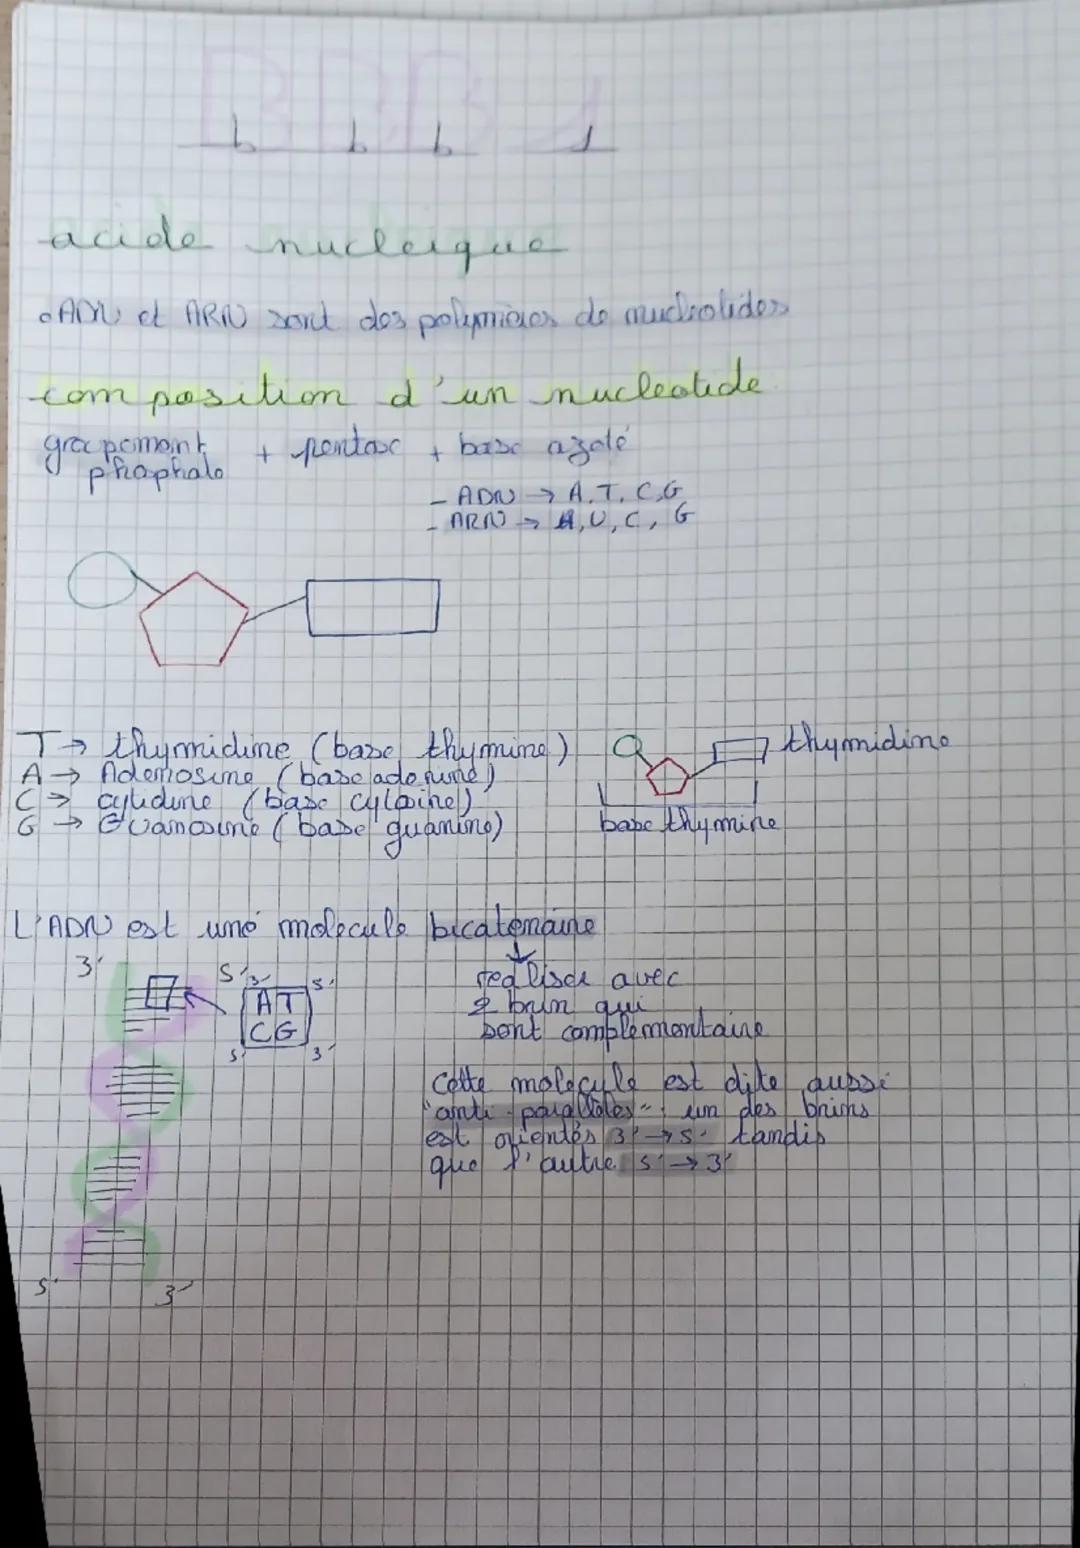 BBB 1
acide nucleique
ADN et ARN sont des polymères de nucleotides
composition d'un nucleotide
groupement phosphate + pentose + base azoté
- ADN → A, T, C, G
- ARN → A, U, C, G
T → thymidine (base thymine)
A → Adenosine (base adenine)
C → cytidine (base cytosine)
G → Guanosine (base guanine)
thymidine
base thymine
L'ADN est une molecule bicatenaire
realiser avec
2 brin qui
sont complementaire
3' 5'
3' 5'
A T
C G
5' 3'
Cette molecule est dite aussi
"anti-parallèles", un des brins
est orientés 3' → 5' tandis
que l'autre 5' → 3'
5' 3'